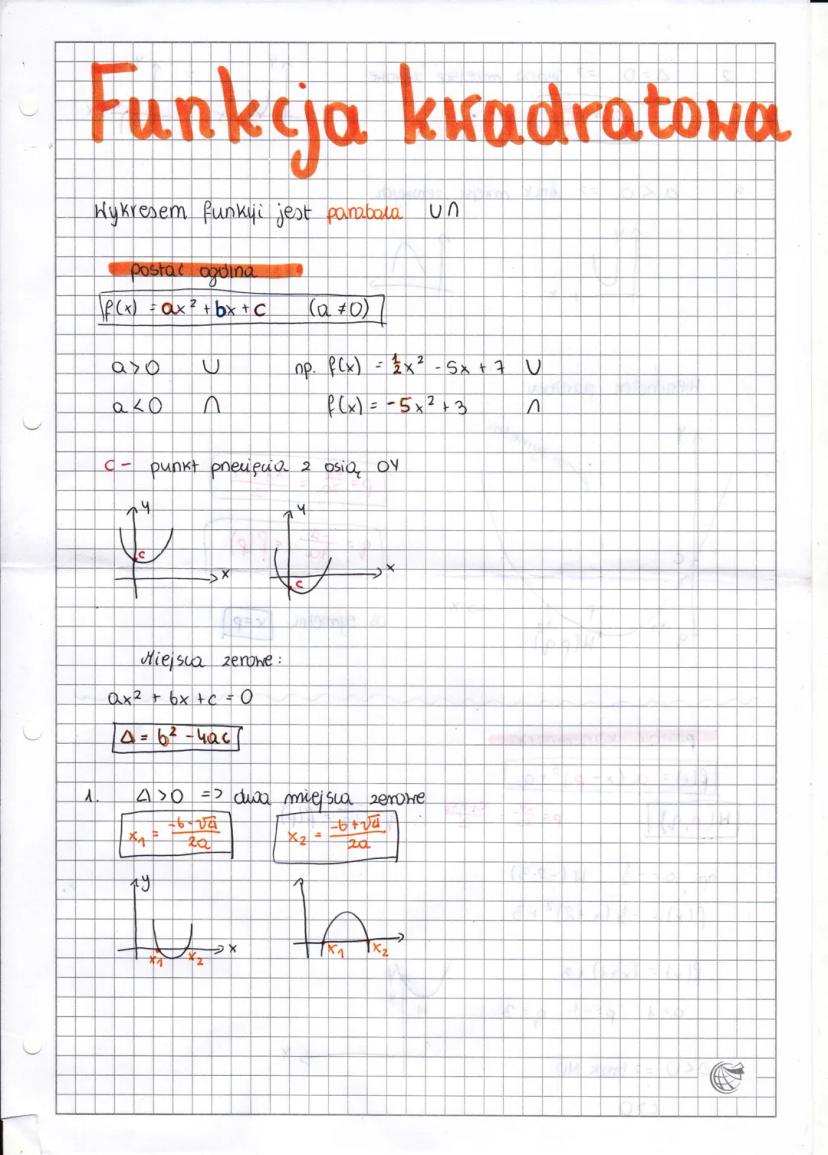 Funkcja kwadratowa
Wykresem funkcji jest parabola ∪∩
postać ogólna
f(x) = ax² + bx + c (a ≠ 0)
a > 0 ∪ np. f(x) = ½x² - 5x + 7 ∪
a < 0 ∩ f(x) = -5x² + 3 ∩
c - punkt przecięcia z osią OY
y y
c x c x
Miejsca zerowe:
ax² + bx + c = 0
Δ = b² - 4ac
1. Δ > 0 => dwa miejsca zerowe
x₁ = (-b-√Δ)/2a x₂ = (-b+√Δ)/2a
y
x₁ x₂ x x₁ x₂